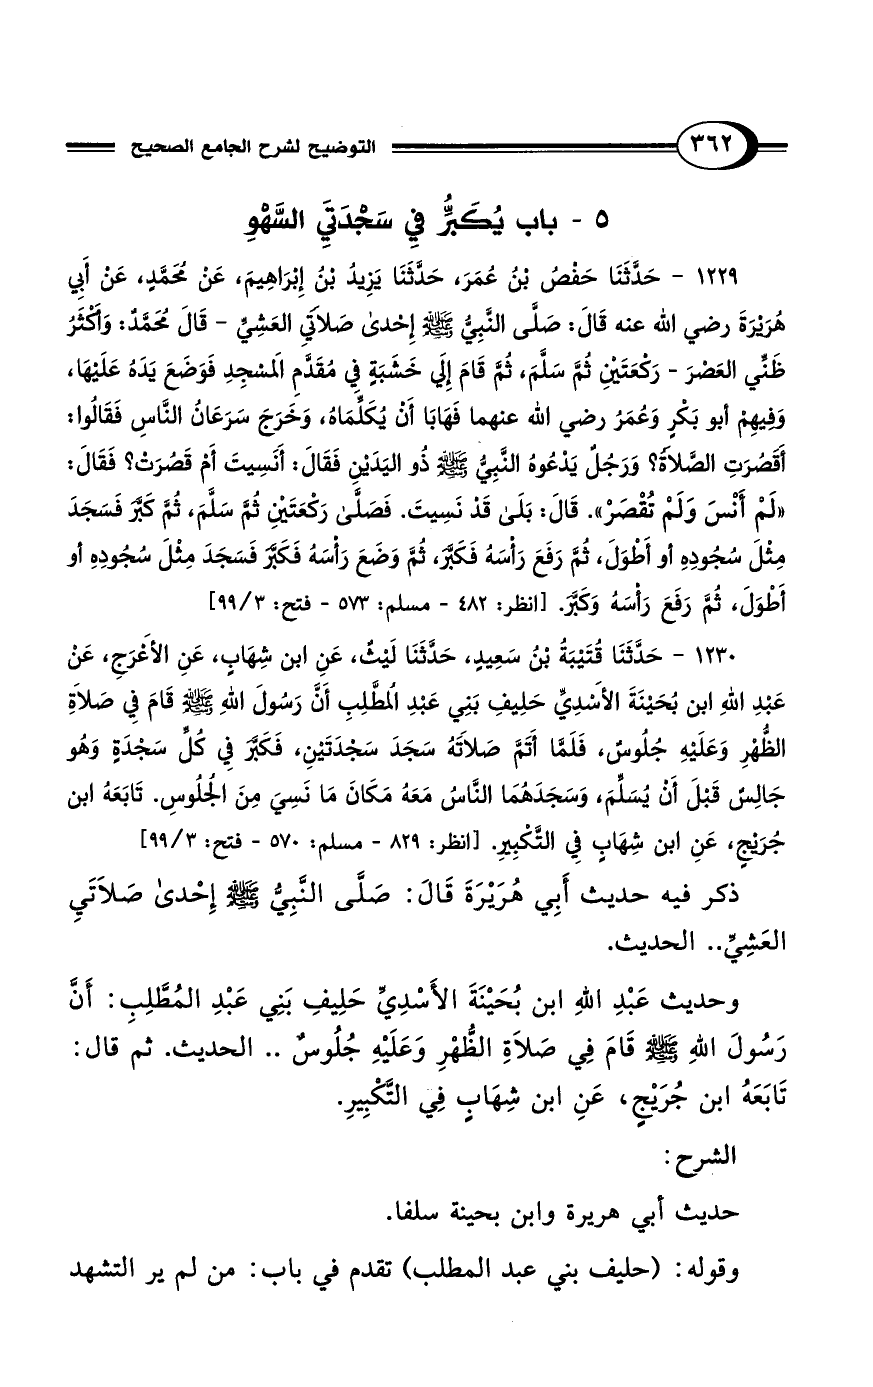 ٣٦٢ التوضيح لشرح الجامع الصحيح
٥ - باب يُكَبِّرُ فِي سَجْدَتَيِ السَّهْوِ
١٢٢٩ - حَدَّثَنَا حَفْصُ بْنُ عُمَرَ، حَدَّثَنَا يَزِيدُ بْنُ إِبْرَاهِيمَ، عَنْ مُحَمَّدٍ، عَنْ أَبِي
هُرَيْرَةَ رضي الله عنه قَالَ: صَلَّى النَّبِيُّ ﷺ إِحْدىٰ صَلاَتَيِ العَشِيِّ - قَالَ مُحَمَّدٌ: وَأَكْثَرُ
ظَنِّي العَصْرَ - رَكْعَتَيْنِ ثُمَّ سَلَّمَ، ثُمَّ قَامَ إِلَى خَشَبَةٍ فِي مُقَدَّمِ المَسْجِدِ فَوَضَعَ يَدَهُ عَلَيْهَا،
وَفِيهِمْ أبو بَكْرٍ وَعُمَرُ رضي الله عنهما فَهَابَا أَنْ يُكَلِّمَاهُ، وَخَرَجَ سَرَعَانُ النَّاسِ فَقَالُوا:
أَقَصُرَتِ الصَّلاَةُ؟ وَرَجُلٌ يَدْعُوهُ النَّبِيُّ ﷺ ذُو اليَدَيْنِ فَقَالَ: أَنَسِيتَ أَمْ قَصُرَتْ؟ فَقَالَ:
«لَمْ أَنْسَ وَلَمْ تُقْصَرْ». قَالَ: بَلَىٰ قَدْ نَسِيتَ. فَصَلَّىٰ رَكْعَتَيْنِ ثُمَّ سَلَّمَ، ثُمَّ كَبَّرَ فَسَجَدَ
مِثْلَ سُجُودِهِ أو أَطْوَلَ، ثُمَّ رَفَعَ رَأْسَهُ فَكَبَّرَ، ثُمَّ وَضَعَ رَأْسَهُ فَكَبَّرَ فَسَجَدَ مِثْلَ سُجُودِهِ أو
أَطْوَلَ، ثُمَّ رَفَعَ رَأْسَهُ وَكَبَّرَ. [انظر: ٤٨٢ - مسلم: ٥٧٣ - فتح: ٩٩/٣]
١٢٣٠ - حَدَّثَنَا قُتَيْبَةُ بْنُ سَعِيدٍ، حَدَّثَنَا لَيْثٌ، عَنِ ابن شِهَابٍ، عَنِ الأَعْرَجِ، عَنْ
عَبْدِ اللهِ ابن بُحَيْنَةَ الأَسْدِيِّ حَلِيفِ بَنِي عَبْدِ المُطَّلِبِ أَنَّ رَسُولَ اللهِ ﷺ قَامَ فِي صَلاَةِ
الظُّهْرِ وَعَلَيْهِ جُلُوسٌ، فَلَمَّا أَتَمَّ صَلاَتَهُ سَجَدَ سَجْدَتَيْنِ، فَكَبَّرَ فِي كُلِّ سَجْدَةٍ وَهُو
جَالِسٌ قَبْلَ أَنْ يُسَلِّمَ، وَسَجَدَهُمَا النَّاسُ مَعَهُ مَكَانَ مَا نَسِيَ مِنَ الجُلُوسِ. تَابَعَهُ ابن
جُرَيْجٍ، عَنِ ابن شِهَابٍ فِي التَّكْبِيرِ. [انظر: ٨٢٩ - مسلم: ٥٧٠ - فتح: ٩٩/٣]
ذكر فيه حديث أَبِي هُرَيْرَةَ قَالَ: صَلَّى النَّبِيُّ ﷺ إِحْدىٰ صَلاَتَيِ
العَشِيِّ.. الحديث.
وحديث عَبْدِ اللهِ ابن بُحَيْنَةَ الأَسْدِيِّ حَلِيفِ بَنِي عَبْدِ المُطَّلِبِ: أَنَّ
رَسُولَ اللهِ ﷺ قَامَ فِي صَلاَةِ الظُّهْرِ وَعَلَيْهِ جُلُوسٌ .. الحديث. ثم قال:
تَابَعَهُ ابن جُرَيْجٍ، عَنِ ابن شِهَابٍ فِي التَّكْبِيرِ.
الشرح:
حديث أبي هريرة وابن بحينة سلفا.
وقوله: (حليف بني عبد المطلب) تقدم في باب: من لم ير التشهد